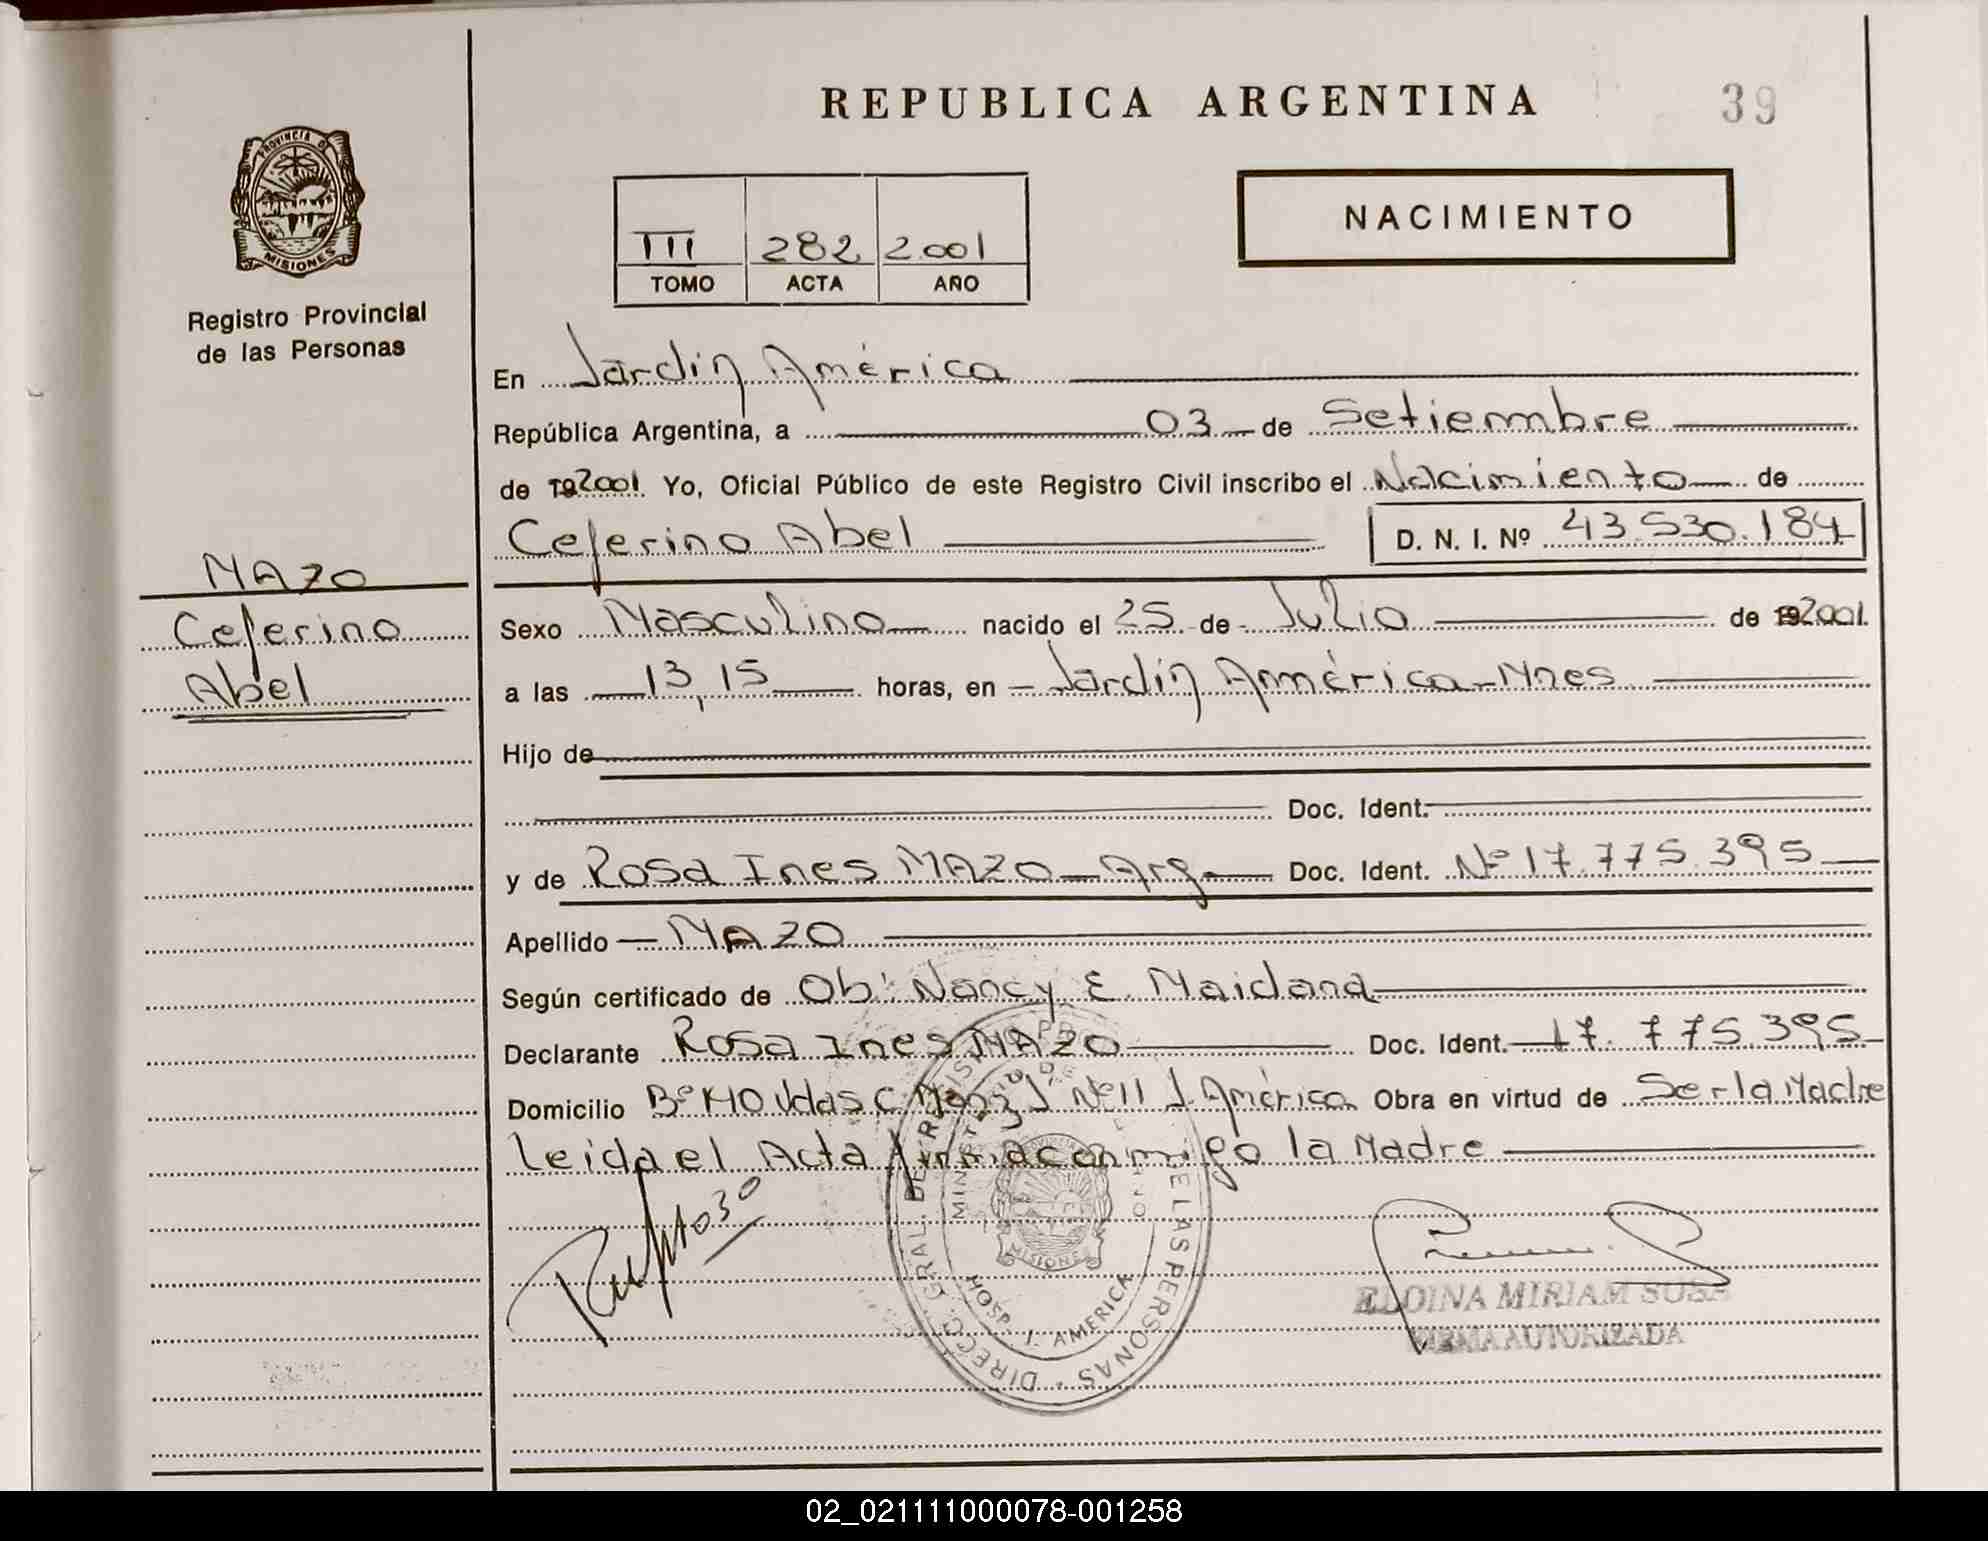 REPUBLICA ARGENTINA
39
PROVINCIA DE
MISIONES
Registro Provincial
de las Personas
III 282 2.001
TOMO ACTA AÑO
NACIMIENTO
En Jardín América
República Argentina, a 03 de Setiembre
de 192001. Yo, Oficial Público de este Registro Civil inscribo el Nacimiento de
Ceferino Abel D. N. I. Nº 43.530.184
MAZO
Ceferino
Abel
Sexo Masculino nacido el 25 de Julio de 192001.
a las 13,15 horas, en Jardín América-Mnes
Hijo de
Doc. Ident.
y de Rosa Ines MAZO - Arg Doc. Ident. Nº 17.775.395
Apellido MAZO
Según certificado de Ob: Nancy E. Maidana
Declarante Rosa Ines MAZO Doc. Ident. 17.775.395
Domicilio Bº J Nº 11 J. América Obra en virtud de Ser la Madre
Leida el Acta firma conmigo la Madre
DIRECC. GRAL. DE REGISTRO PROV. DE LAS PERSONAS
HOSP. J. AMERICA
MISIONES
ELOINA MIRIAM SOSA
FIRMA AUTORIZADA
02_021111000078-001258